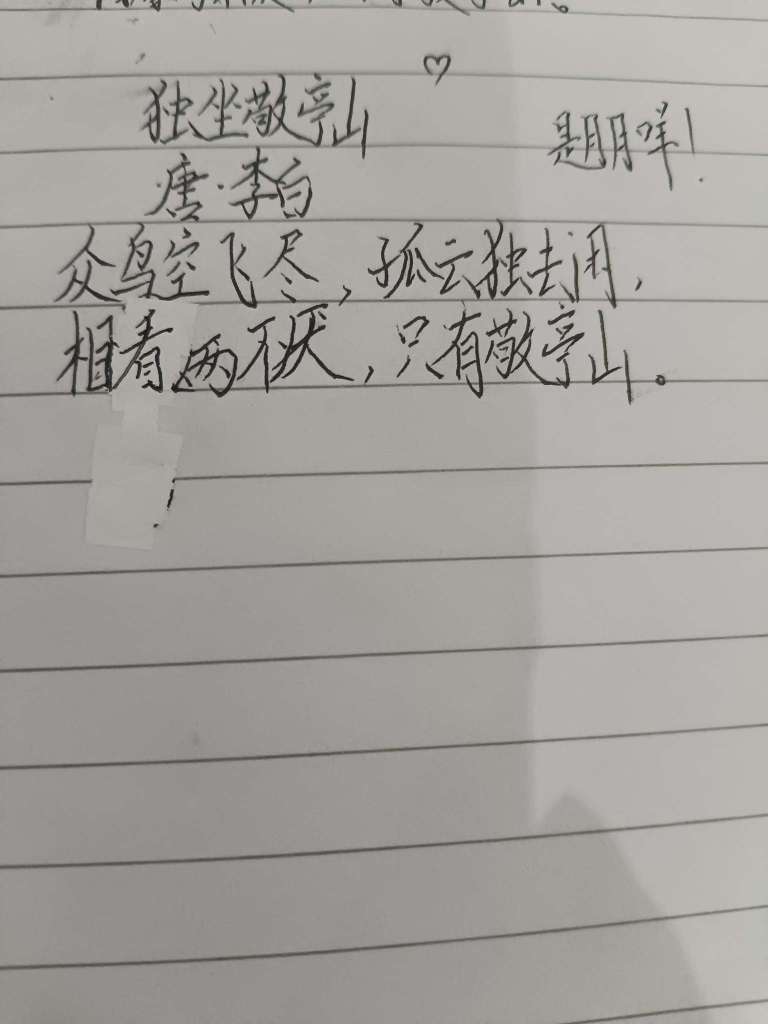 独坐敬亭山
是朋咩!
唐·李白
众鸟空飞尽,孤云独去闲,
相看两不厌,只有敬亭山。